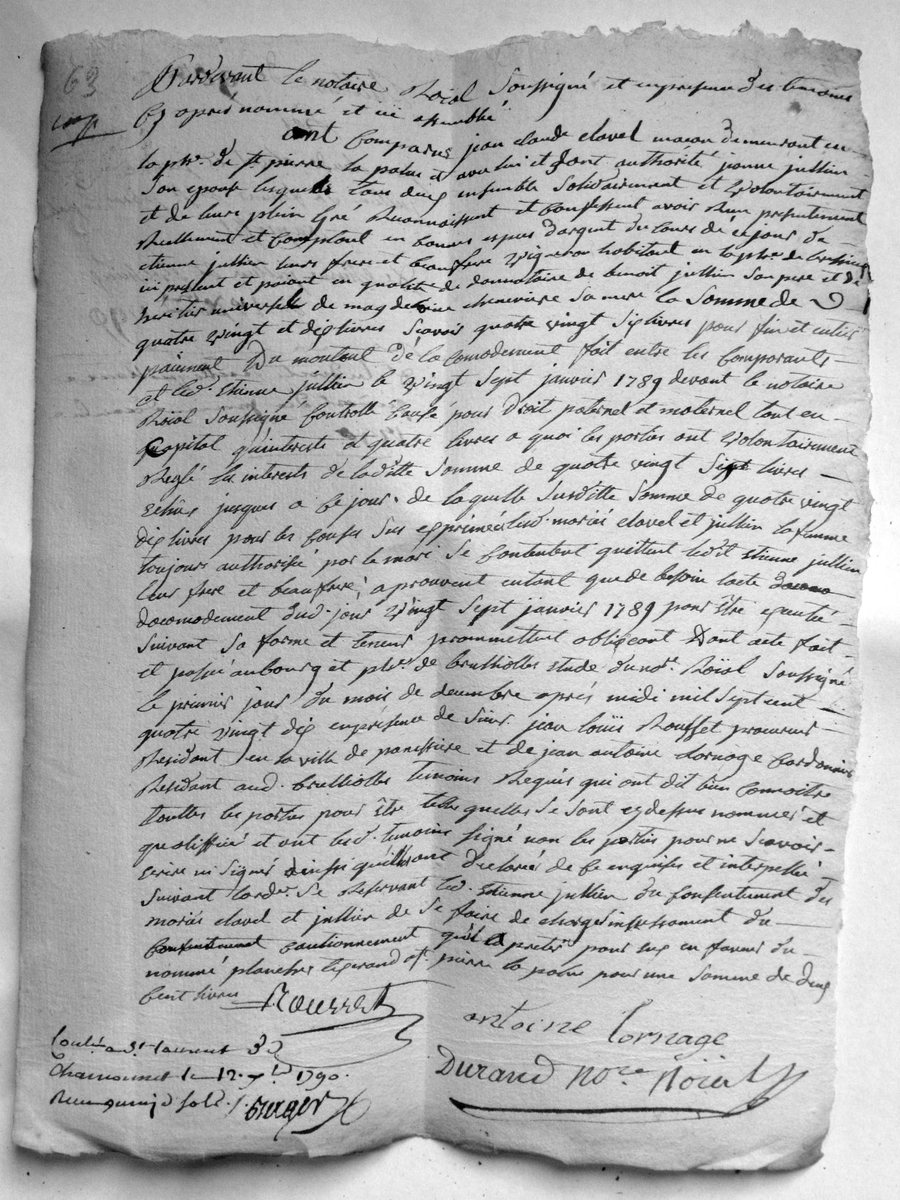 63
Pardevant le notaire Roïal Soussigné et en presence des temoins
Cy aprés nommé et ici assemblé
ont Comparus jean claude clavel maçon demeurant en
la psse. de st. pierre la palud et avec lui et de son authorité jeanne jullien
Son epouse lesquels tous deux ensemble Solidairement et volontairement
et de leurs plein gré Reconnaissent et Confessent avoir Reçu presentement
Reellement et Comptant en bonnes especes d'argent du Cours de ce jour de
etienne jullien leurs frere et beaufrere vigneron habitant en la psse. de
ici present et paiant en qualité de donnataire de benoit jullien Son pere et de
heritier universelle de magdelaine cheneviere Sa mere la Somme de
quatre vingt et dix livres Scavoir quatre vingt Six livres pour fin et entier
paiement Du montant de la comodement fait entre les Comparants
et led. Etienne jullien le vingt Sept janvier 1789 devant le notaire
Roïal Soussigné Controllé Causé pour Droit paternel et maternel tant en
Capital qu'interests et quatre livres a quoi les parties ont volontairement
Reglé les interests de laditte Somme de quatre vingt Six livres
Echus jusques a Ce jour. de laquelle Susditte Somme de quatre vingt
dix livres pour les Causes Sus exprimées lesd. mariés clavel et jullien la femme
toujours authorisée par le mari Se Contentent quittent ledit Etienne jullien
leur frere et beaufrere; aprouvent entant que de besoin l'acte
dacomodement dud. jour vingt Sept janvier 1789 pour être executé
Suivant Sa forme et teneur prommettent obligeant Dont acte fait
et passé au bourg et psse. de brullioles etude du not. Roïal Soussigné
le premier jour du mois de decembre aprés midi mil Sept cent
quatre vingt dix en presence de Sieur jean loüis Rousset procureur
Residant en la ville de panissiere et de jean antoine Lornage Cordonnier
Residant aud. brullioles temoins Requis qui ont dit bien Connoitre
touttes les parties pour être telles quelles Se Sont cy dessus nommer et
qualiffiée et ont lesd. temoins Signé non les parties pour ne Scavoir
ecrire ni Signer ainssi quils ont Declarés de Ce enquises et interpellée
Suivant lord.e Se Reservant led. Etienne jullien du Consentement des
mariés clavel et jullien de Se faire de charger du
cautionnement qu'il a preté pour eux en faveur du
nommé planches legrand st. pierre la palud pour une Somme de deux
Cent livres Rousset
antoine Lornage
Durand No.re Roïal
Conl. a St. laurent 3D
Chamousset le 12. xbre 1790.
Reçu quinze Sols ./. Burger